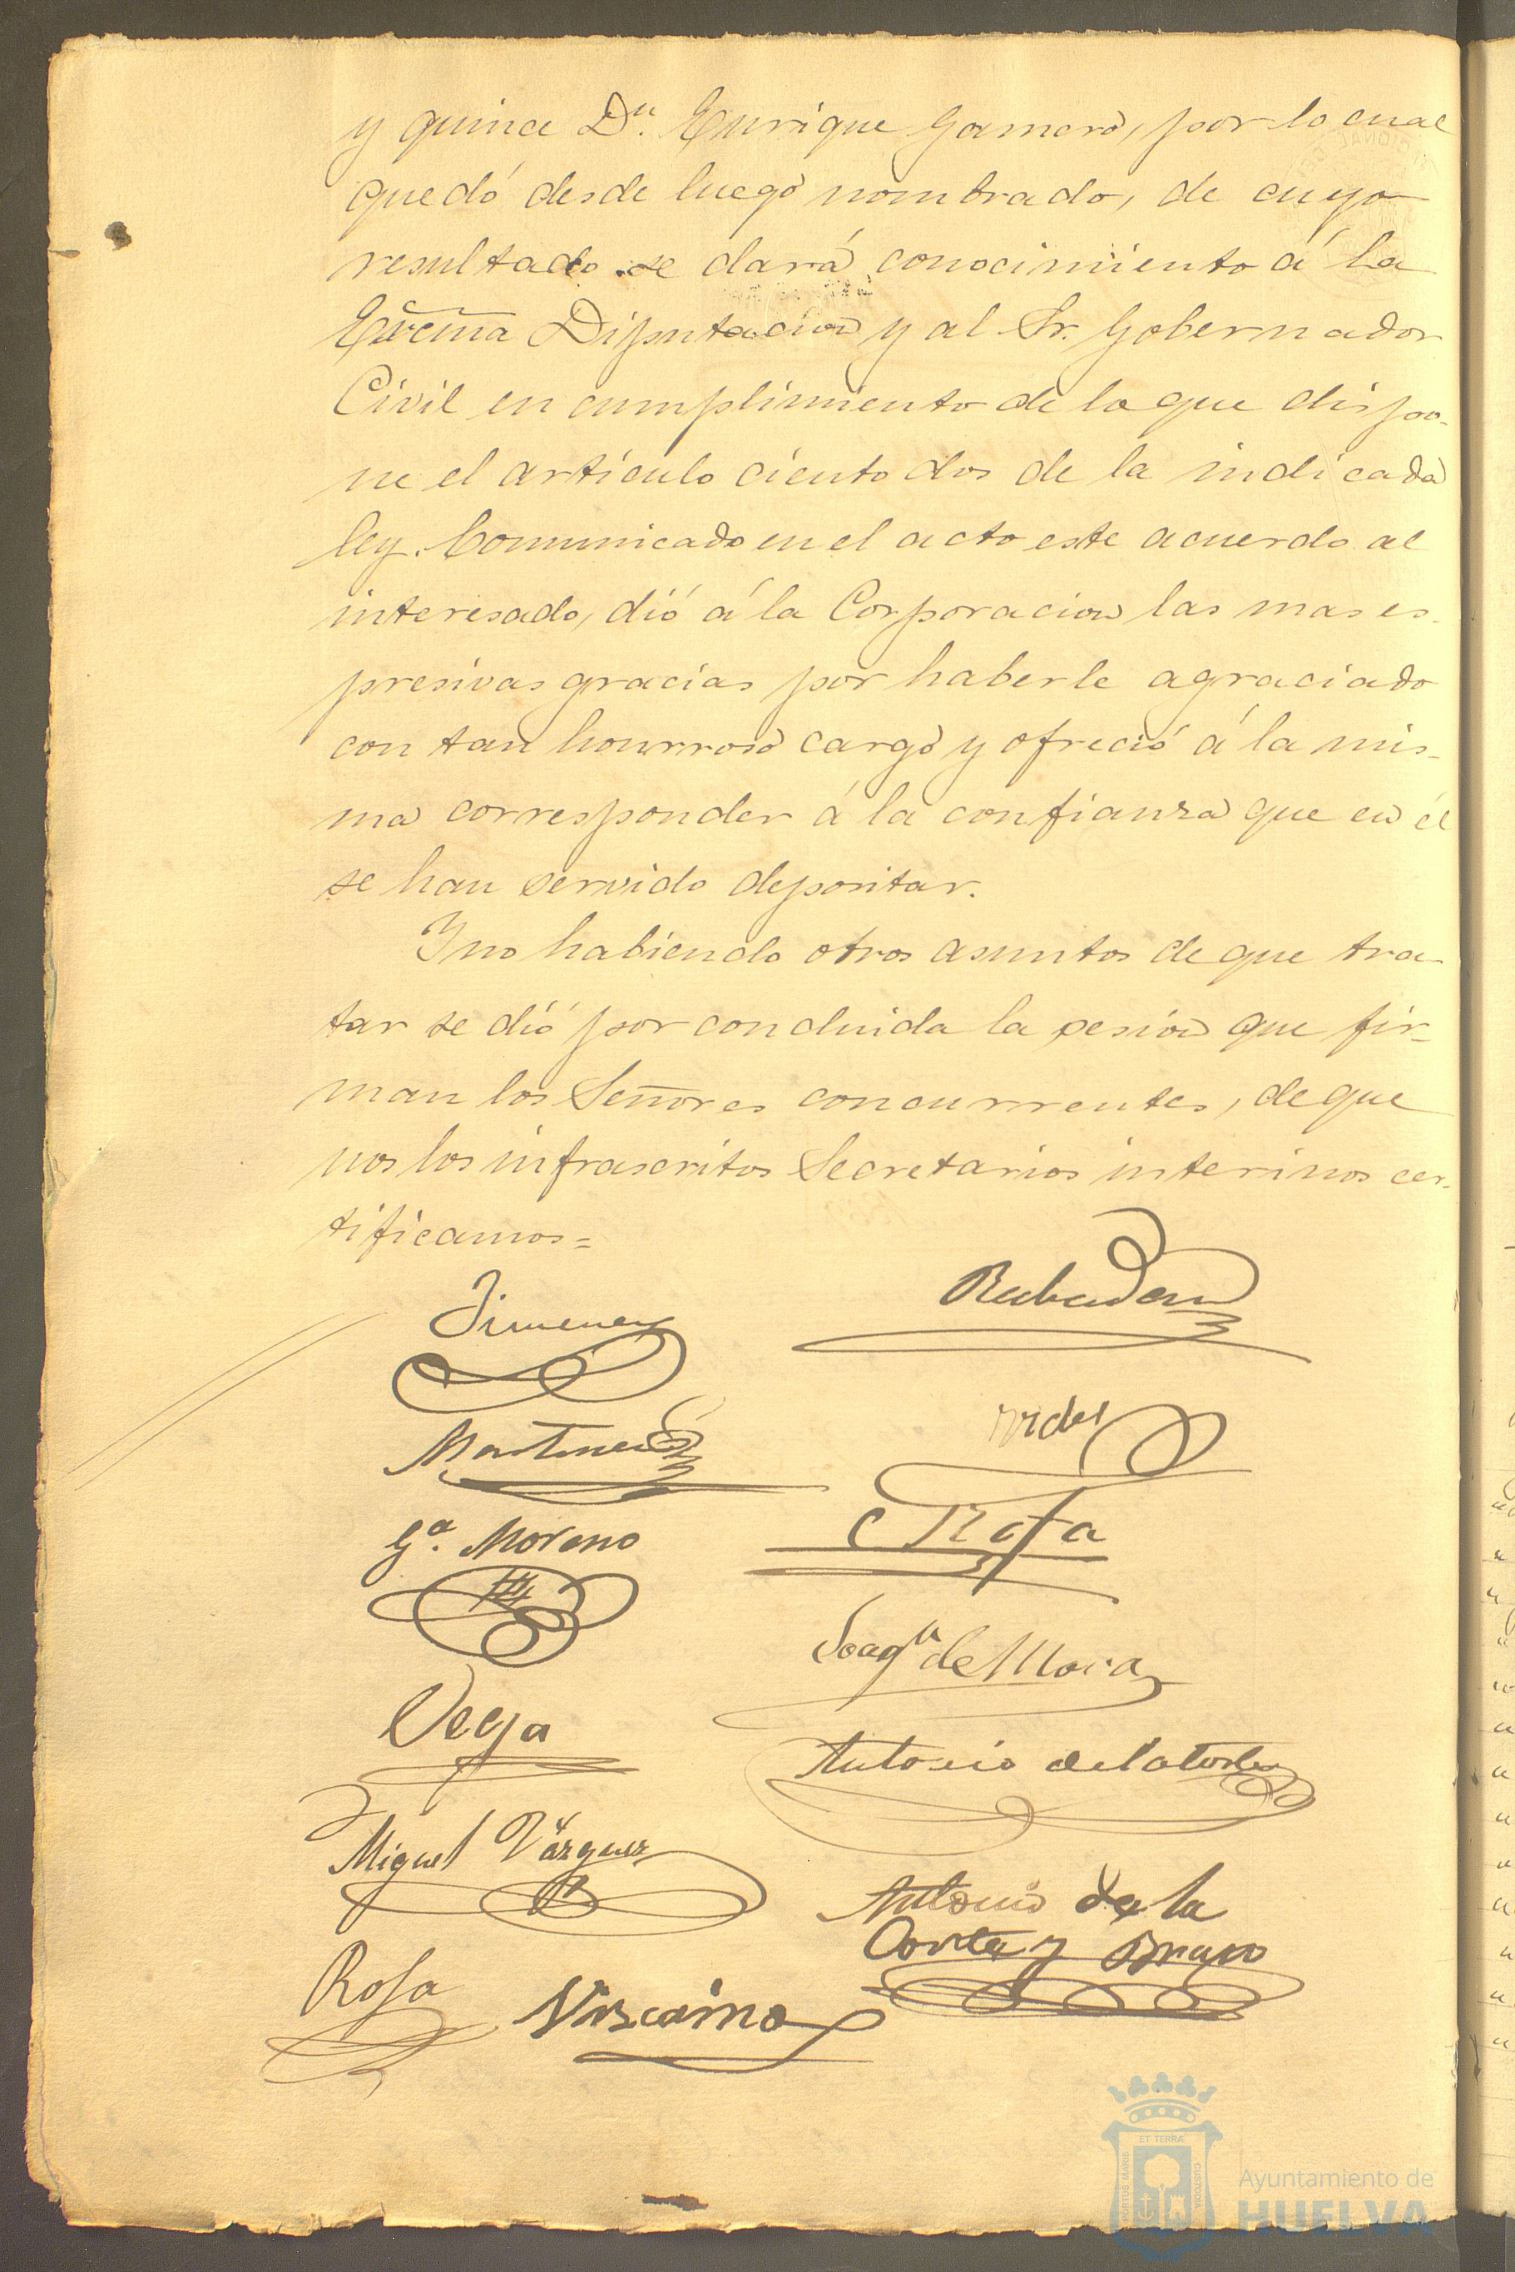 y quince Dn. Enrique Gamero, por lo cual
quedó desde luego nombrado, de cuyo
resultado se dará conocimiento á la
Excma Diputacion y al Sr. Gobernador
Civil en cumplimiento de lo que dispo-
ne el artículo ciento dos de la indicada
ley. Comunicado en el acto este acuerdo al
interesado, dió á la Corporacion las mas es-
presivas gracias por haberle agraciado
con tan honrroso cargo y ofreció á la mis-
ma corresponder á la confianza que en él
se han servido depositar.
Y no habiendo otros asuntos de que tra-
tar se dió por concluida la sesion que fir-
man los Señores concurrentes, de que
nos los infrascritos Secretarios interinos cer-
tificamos=
Jimenez
Rabadan
Martinez
Vides
Ga. Moreno
Joaqn de Mora
Vega
Antonio de la Torre
Miguel Vázquez
Antonio de la
Corte y Bravo
Rosa
Vizcaino
ET TERRAE
PORTUS MARIS
CUSTODIA
Ayuntamiento de
HUELVA